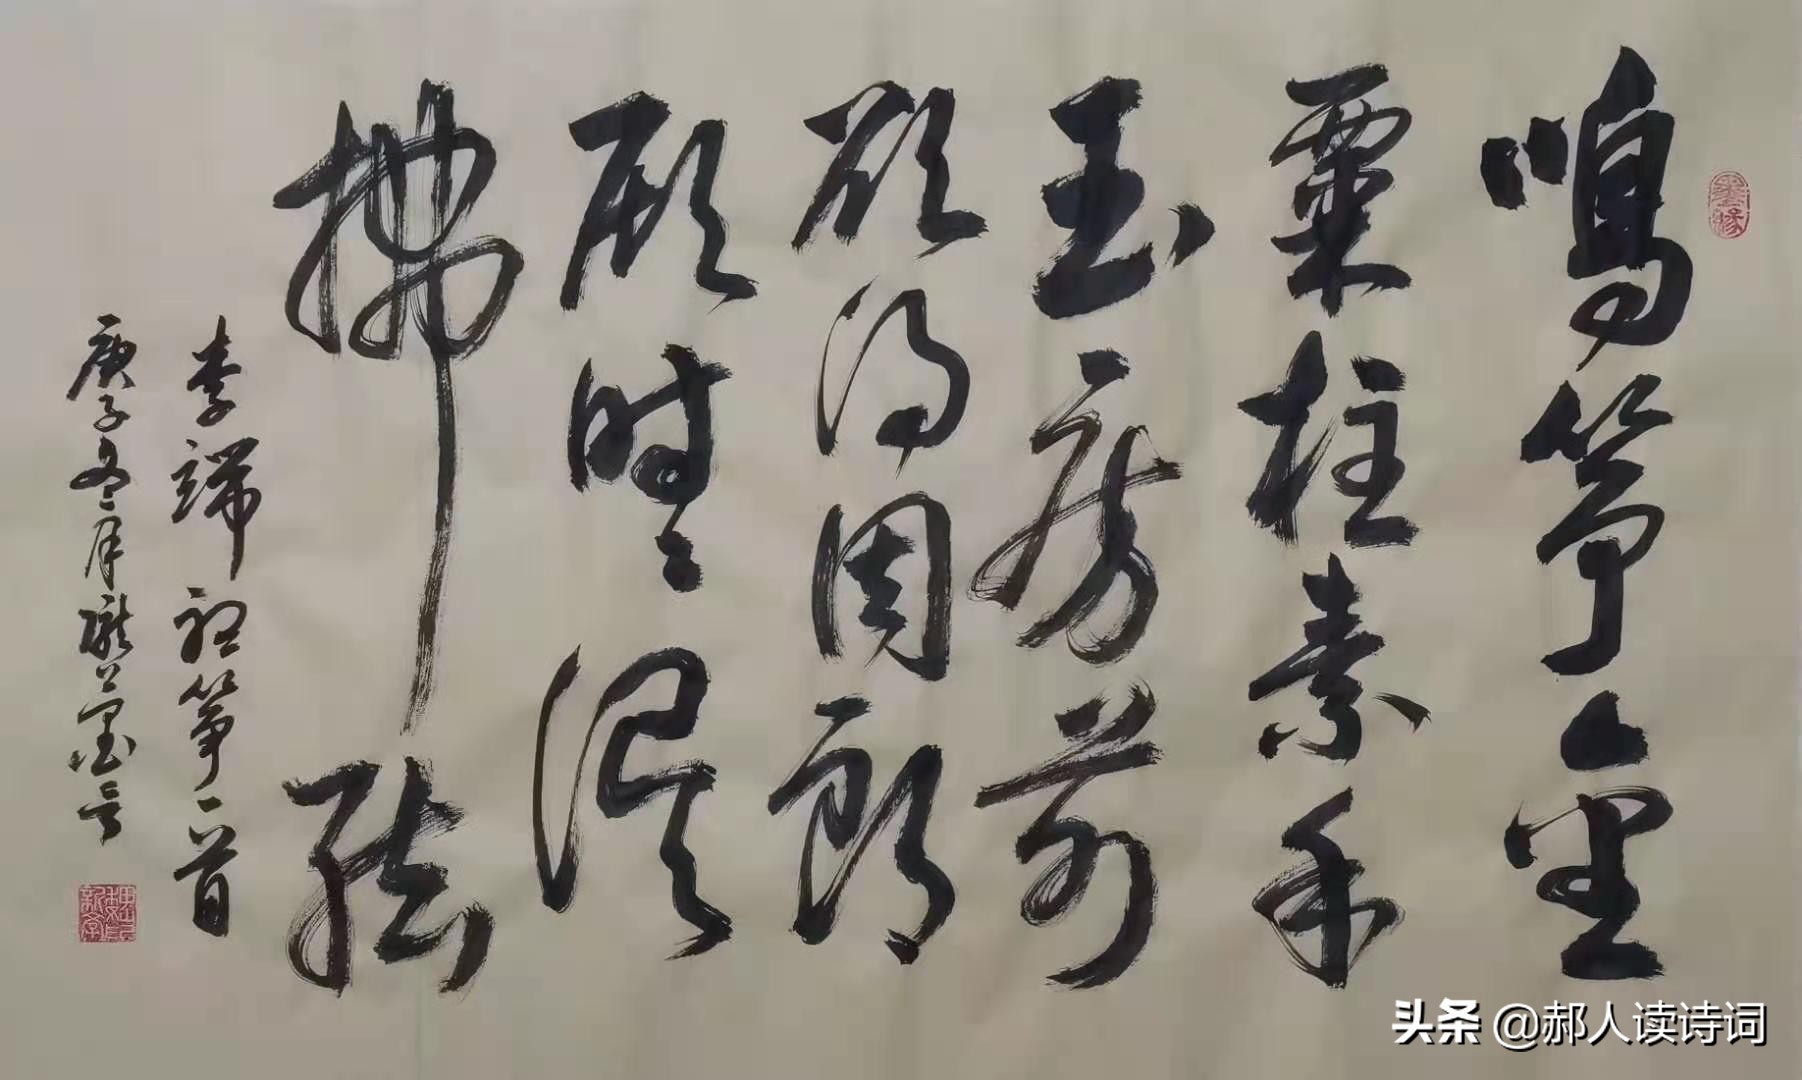 鸣筝金
粟柱素手
玉房前
欲得周郎
顾时时误
拂絃
李端 筝一首
庚子冬月
墨缘
头条 @郝人读诗词